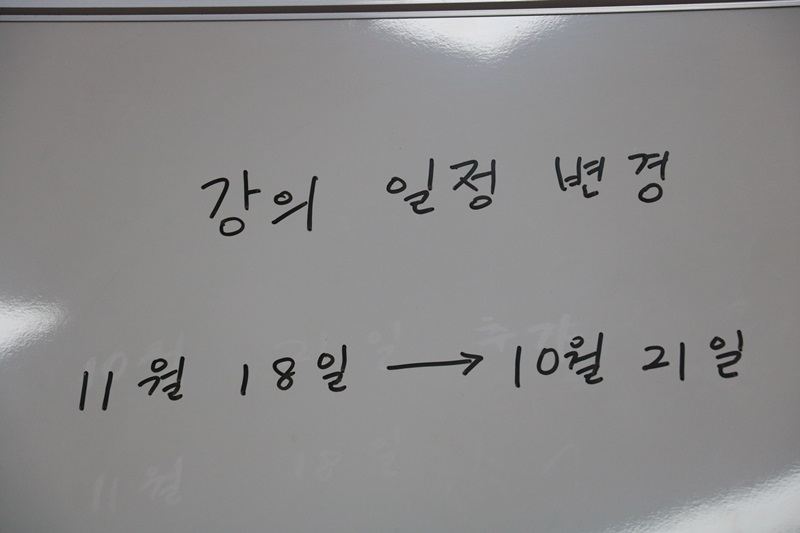 강의 일정 변경
11월 18일 → 10월 21일